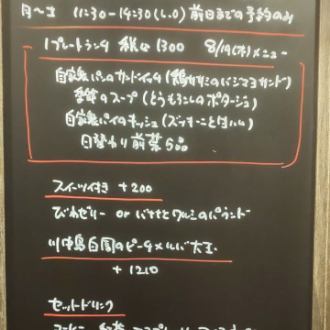 月〜土 11:30-14:30(L.O) 前日までの予約のみ
1プレートランチ 税込 1300 8/19(木)メニュー
自家製パンのサンドイッチ(鶏ササミのバジマヨサンド)
季節のスープ(とうもろこしのポタージュ)
自家製パイのキッシュ(ズッキーニとはハム)
日替わり 前菜5品
スイーツ付き +200
びわゼリー or バナナとクルミのパウンド
川中島白桃のピーチメルバ大王
+1210
セットドリンク